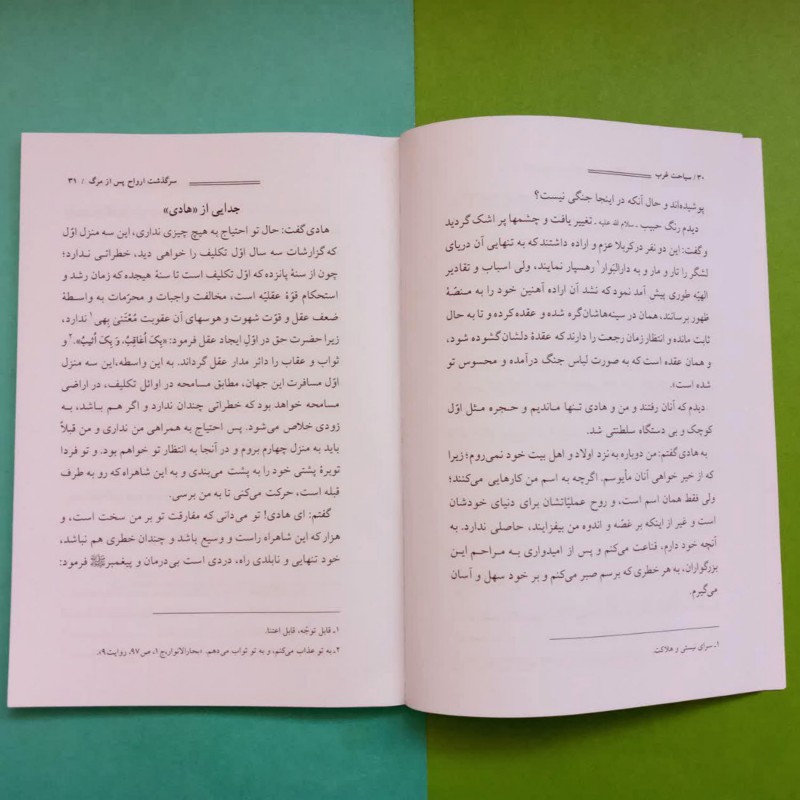 ۳۰ / سیاحت غرب
پوشیده‌اند و حال آنکه در اینجا جنگی نیست؟
دیدم رنگ حبیب ـ سلام الله علیه ـ تغییر یافت و چشمها پر اشک گردید
و گفت: این دو نفر در کربلا عزم و اراده داشتند که به تنهایی آن دریای
لشگر را تار و مار و به دارالبَوار۱ رهسپار نمایند، ولی اسباب و تقادیر
الهیّه طوری پیش آمد نمود که نشد آن اراده آهنین خود را به منصّهٔ
ظهور برسانند، همان در سینه‌هاشان گره شده و عقده کرده و تا به حال
ثابت مانده و انتظار زمان رجعت را دارند که عقدهٔ دلشان گشوده شود،
و همان عقده است که به صورت لباس جنگ درآمده و محسوس تو
شده است».
دیدم که آنان رفتند و من و هادی تنها ماندیم و حجره مثل اوّل
کوچک و بی دستگاه سلطنتی شد.
به هادی گفتم: من دوباره به نزد اولاد و اهل بیت خود نمی‌روم؛ زیرا
که از خیر خواهی آنان مأیوسم. اگرچه به اسم من کارهایی می‌کنند؛
ولی فقط همان اسم است، و روح عملیّاتشان برای دنیای خودشان
است و غیر از اینکه بر غصّه و اندوه من بیفزایند، حاصلی ندارد. به
آنچه خود دارم، قناعت می‌کنم و پس از امیدواری به مراحم این
بزرگواران، به هر خطری که برسم صبر می‌کنم و بر خود سهل و آسان
می‌گیرم.
۱ـ سرای نیستی و هلاکت.
سرگذشت ارواح پس از مرگ / ۳۱
جدایی از «هادی»
هادی گفت: حال تو احتیاج به هیچ چیزی نداری، این سه منزل اوّل
که گزارشات سه سال اوّل تکلیف را خواهی دید، خطراتی ندارد؛
چون از سنهٔ پانزده که اوّل تکلیف است تا سنهٔ هیجده که زمان رشد و
استحکام قوّهٔ عقلیّه است، مخالفت واجبات و محرّمات به واسطهٔ
ضعف عقل و قوّت شهوت و هوسهای آن عقوبت مُعْتَنیٰ بِهی۱ ندارد،
زیرا حضرت حق در اوّلِ ایجاد عقل فرمود: «بِکَ اُعاقِبُ، وَ بِکَ اُثیبُ».۲ و
ثواب و عقاب را دائر مدار عقل گرداند. به این واسطه، این سه منزل
اوّل مسافرت این جهان، مطابق مسامحه در اوائل تکلیف، در اراضی
مسامحه خواهد بود که خطراتی چندان ندارد و اگر هم باشد، به
زودی خلاص می‌شود. پس احتیاج به همراهی من نداری و من قبلاً
باید به منزل چهارم بروم و در آنجا به انتظار تو خواهم بود. و تو فردا
توبرهٔ پشتی خود را به پشت می‌بندی و به این شاهراه که رو به طرف
قبله است، حرکت می‌کنی تا به من برسی.
گفتم: ای هادی! تو می‌دانی که مفارقت تو بر من سخت است، و
هزار که این شاهراه راست و وسیع باشد و چندان خطری هم نباشد،
خود تنهایی و نابلدی راه، دردی است بی‌درمان و پیغمبرﷺ فرمود:
۱ـ قابل توجّه، قابل اعتنا.
۲ـ به تو عذاب می‌کنم، و به تو ثواب می‌دهم. «بحارالانوار، ج۱، ص۹۷، روایت۹».